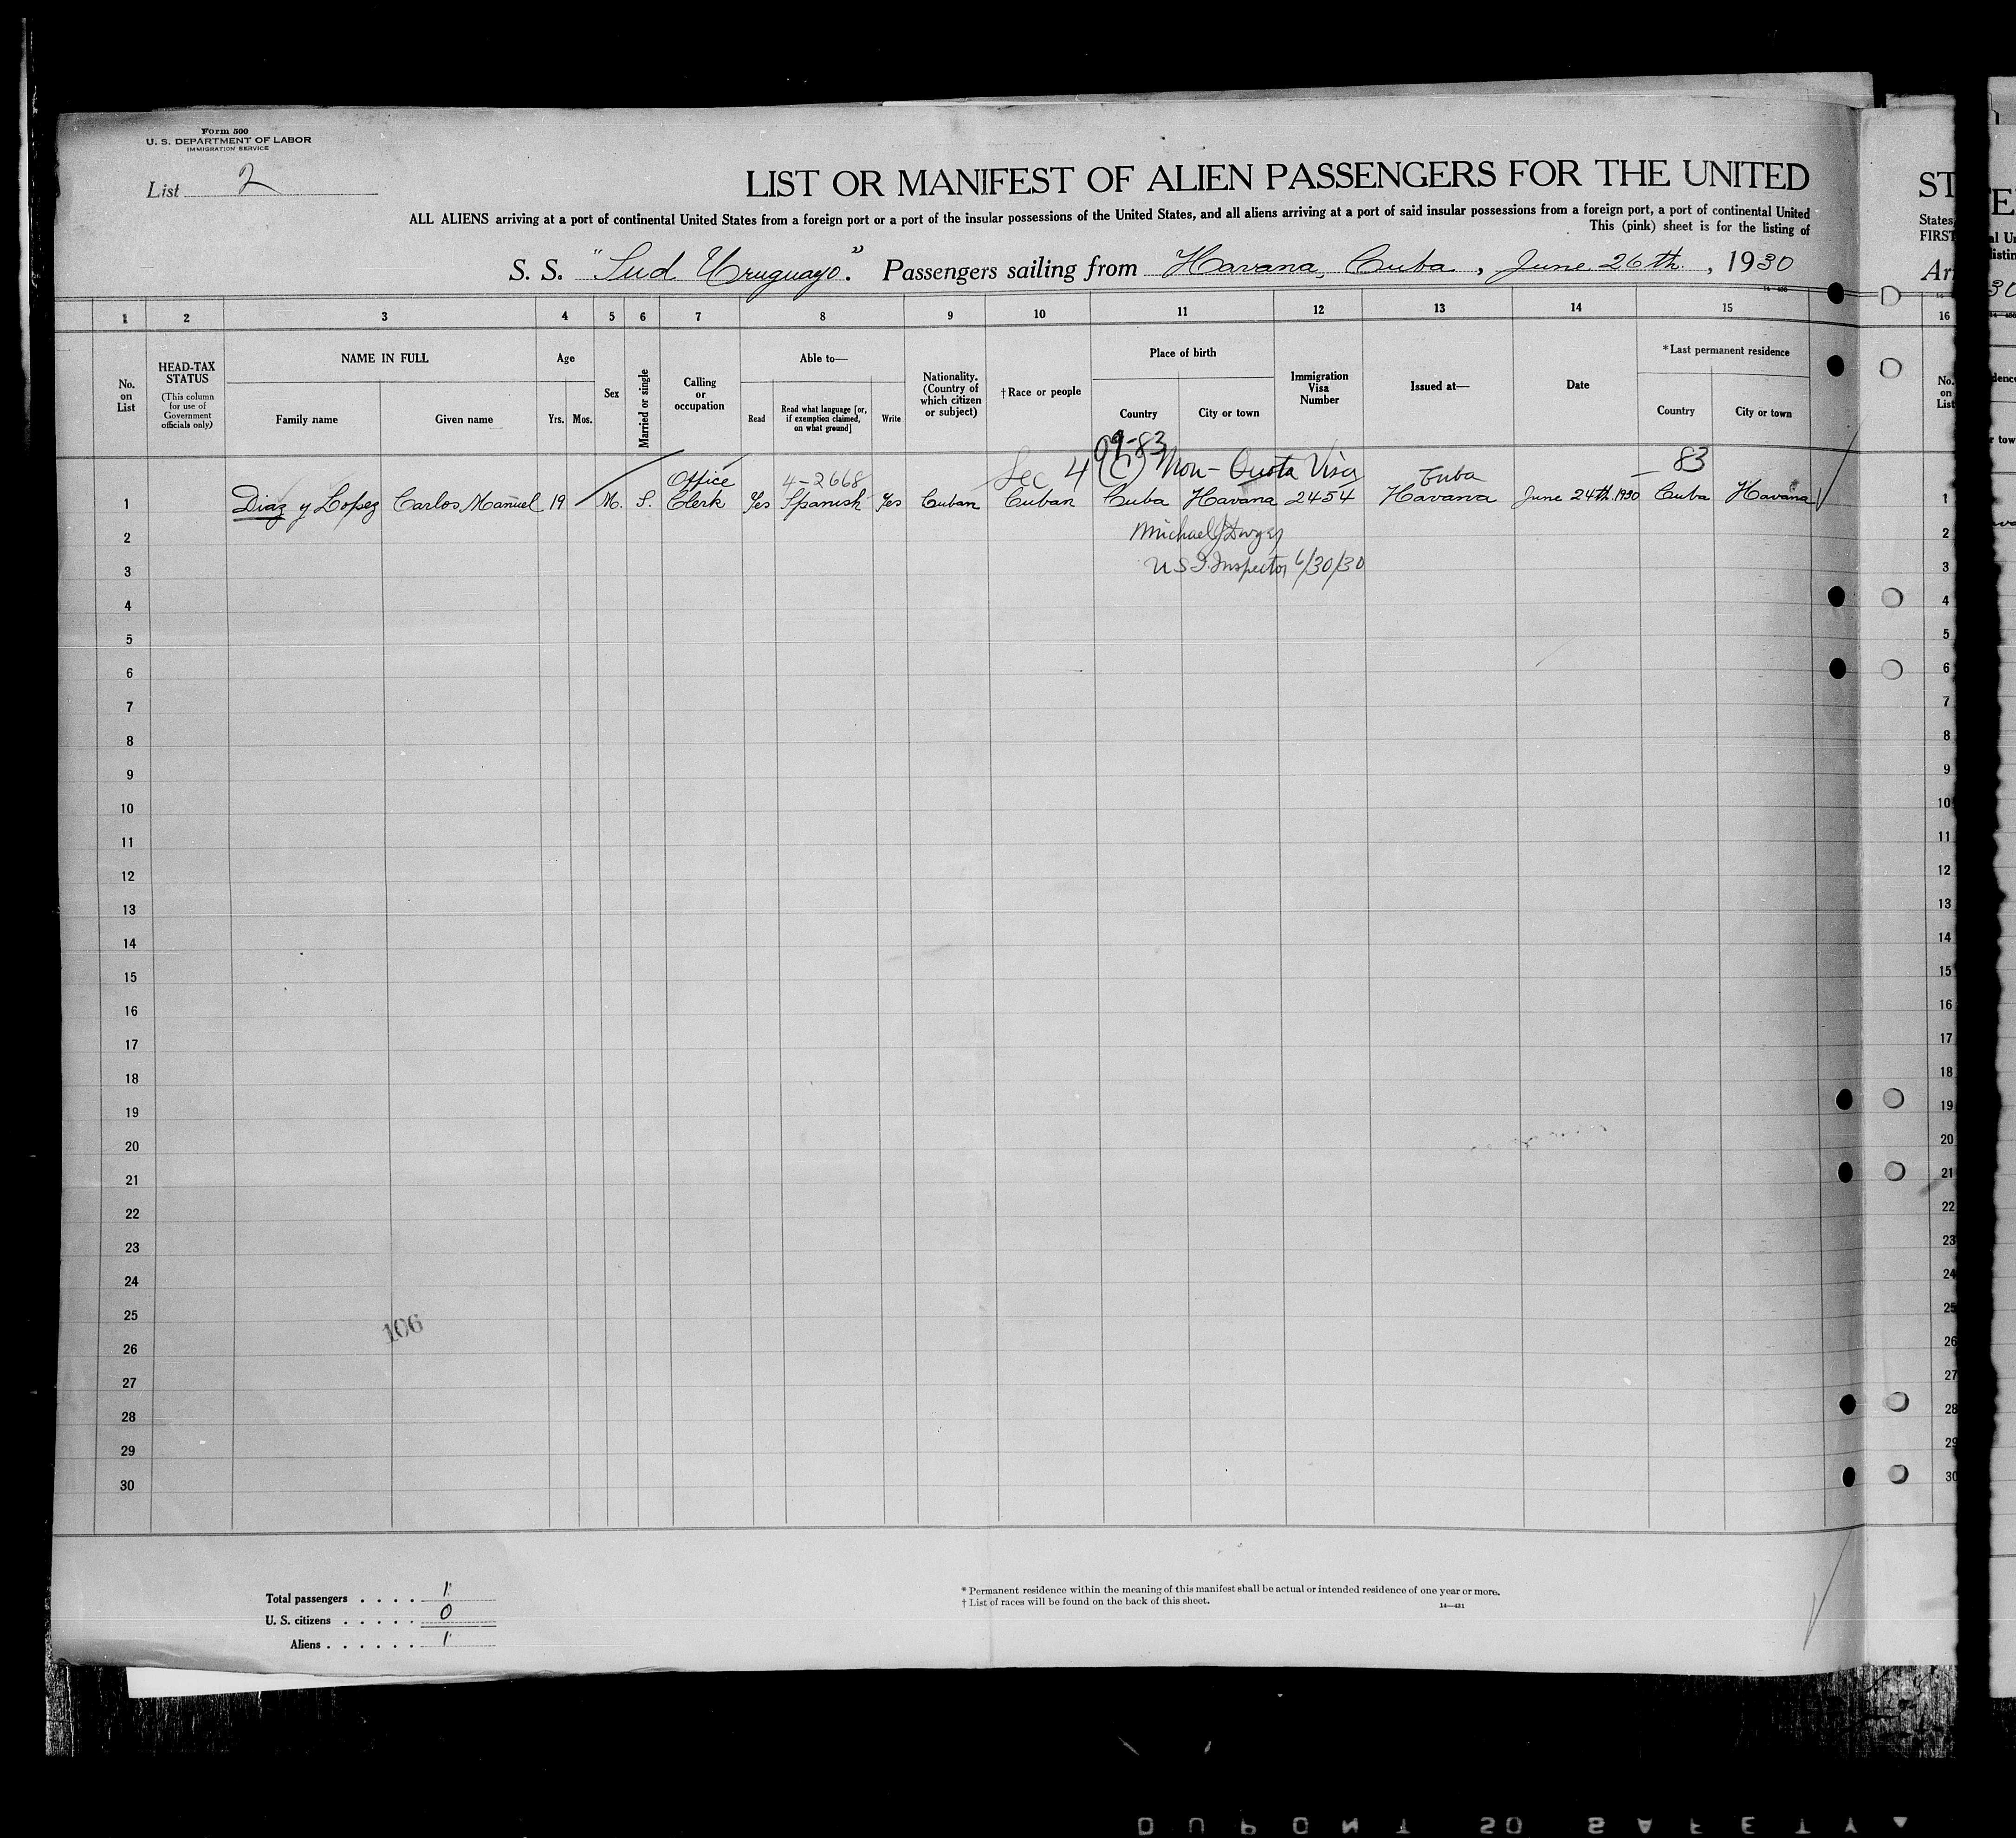 Form 500
U. S. DEPARTMENT OF LABOR
IMMIGRATION SERVICE
List 2
LIST OR MANIFEST OF ALIEN PASSENGERS FOR THE UNITED
ALL ALIENS arriving at a port of continental United States from a foreign port or a port of the insular possessions of the United States, and all aliens arriving at a port of said insular possessions from a foreign port, a port of continental United
This (pink) sheet is for the listing of
S. S. "Sud Uruguayo". Passengers sailing from Havana, Cuba, June 26th, 1930
1 2 3 4 5 6 7 8 9 10 11 12 13 14 15
No. on List
HEAD-TAX STATUS
(This column for use of Government officials only)
NAME IN FULL
Family name
Given name
Age
Yrs.
Mos.
Sex
Married or single
Calling or occupation
Able to—
Read
Read what language [or, if exemption claimed, on what ground]
Write
Nationality. (Country of which citizen or subject)
†Race or people
Place of birth
Country
City or town
Immigration Visa Number
Issued at—
Date
*Last permanent residence
Country
City or town
09-83
Sec 4 (C) Non-Quota Visa
83
Office
4-2668
Cuba
1 Diaz y Lopez Carlos Manuel 19 M. S. Clerk Yes Spanish Yes Cuban Cuban Cuba Havana 2454 Havana June 24th 1930 Cuba Havana
2 Michael J Dwyer
3 U S I. Inspector 6/30/30
4
5
6
7
8
9
10
11
12
13
14
15
16
17
18
19
20
21
22
23
24
25
106
26
27
28
29
30
Total passengers . . . . 1
U. S. citizens . . . . . 0
Aliens . . . . . . 1
* Permanent residence within the meaning of this manifest shall be actual or intended residence of one year or more.
† List of races will be found on the back of this sheet.
14—431
ST
States
FIRST
Ar
16
No. on List
1
2
3
4
5
6
7
8
9
10
11
12
13
14
15
16
17
18
19
20
21
22
23
24
25
26
27
28
29
30
DUPONT SO SAFETY